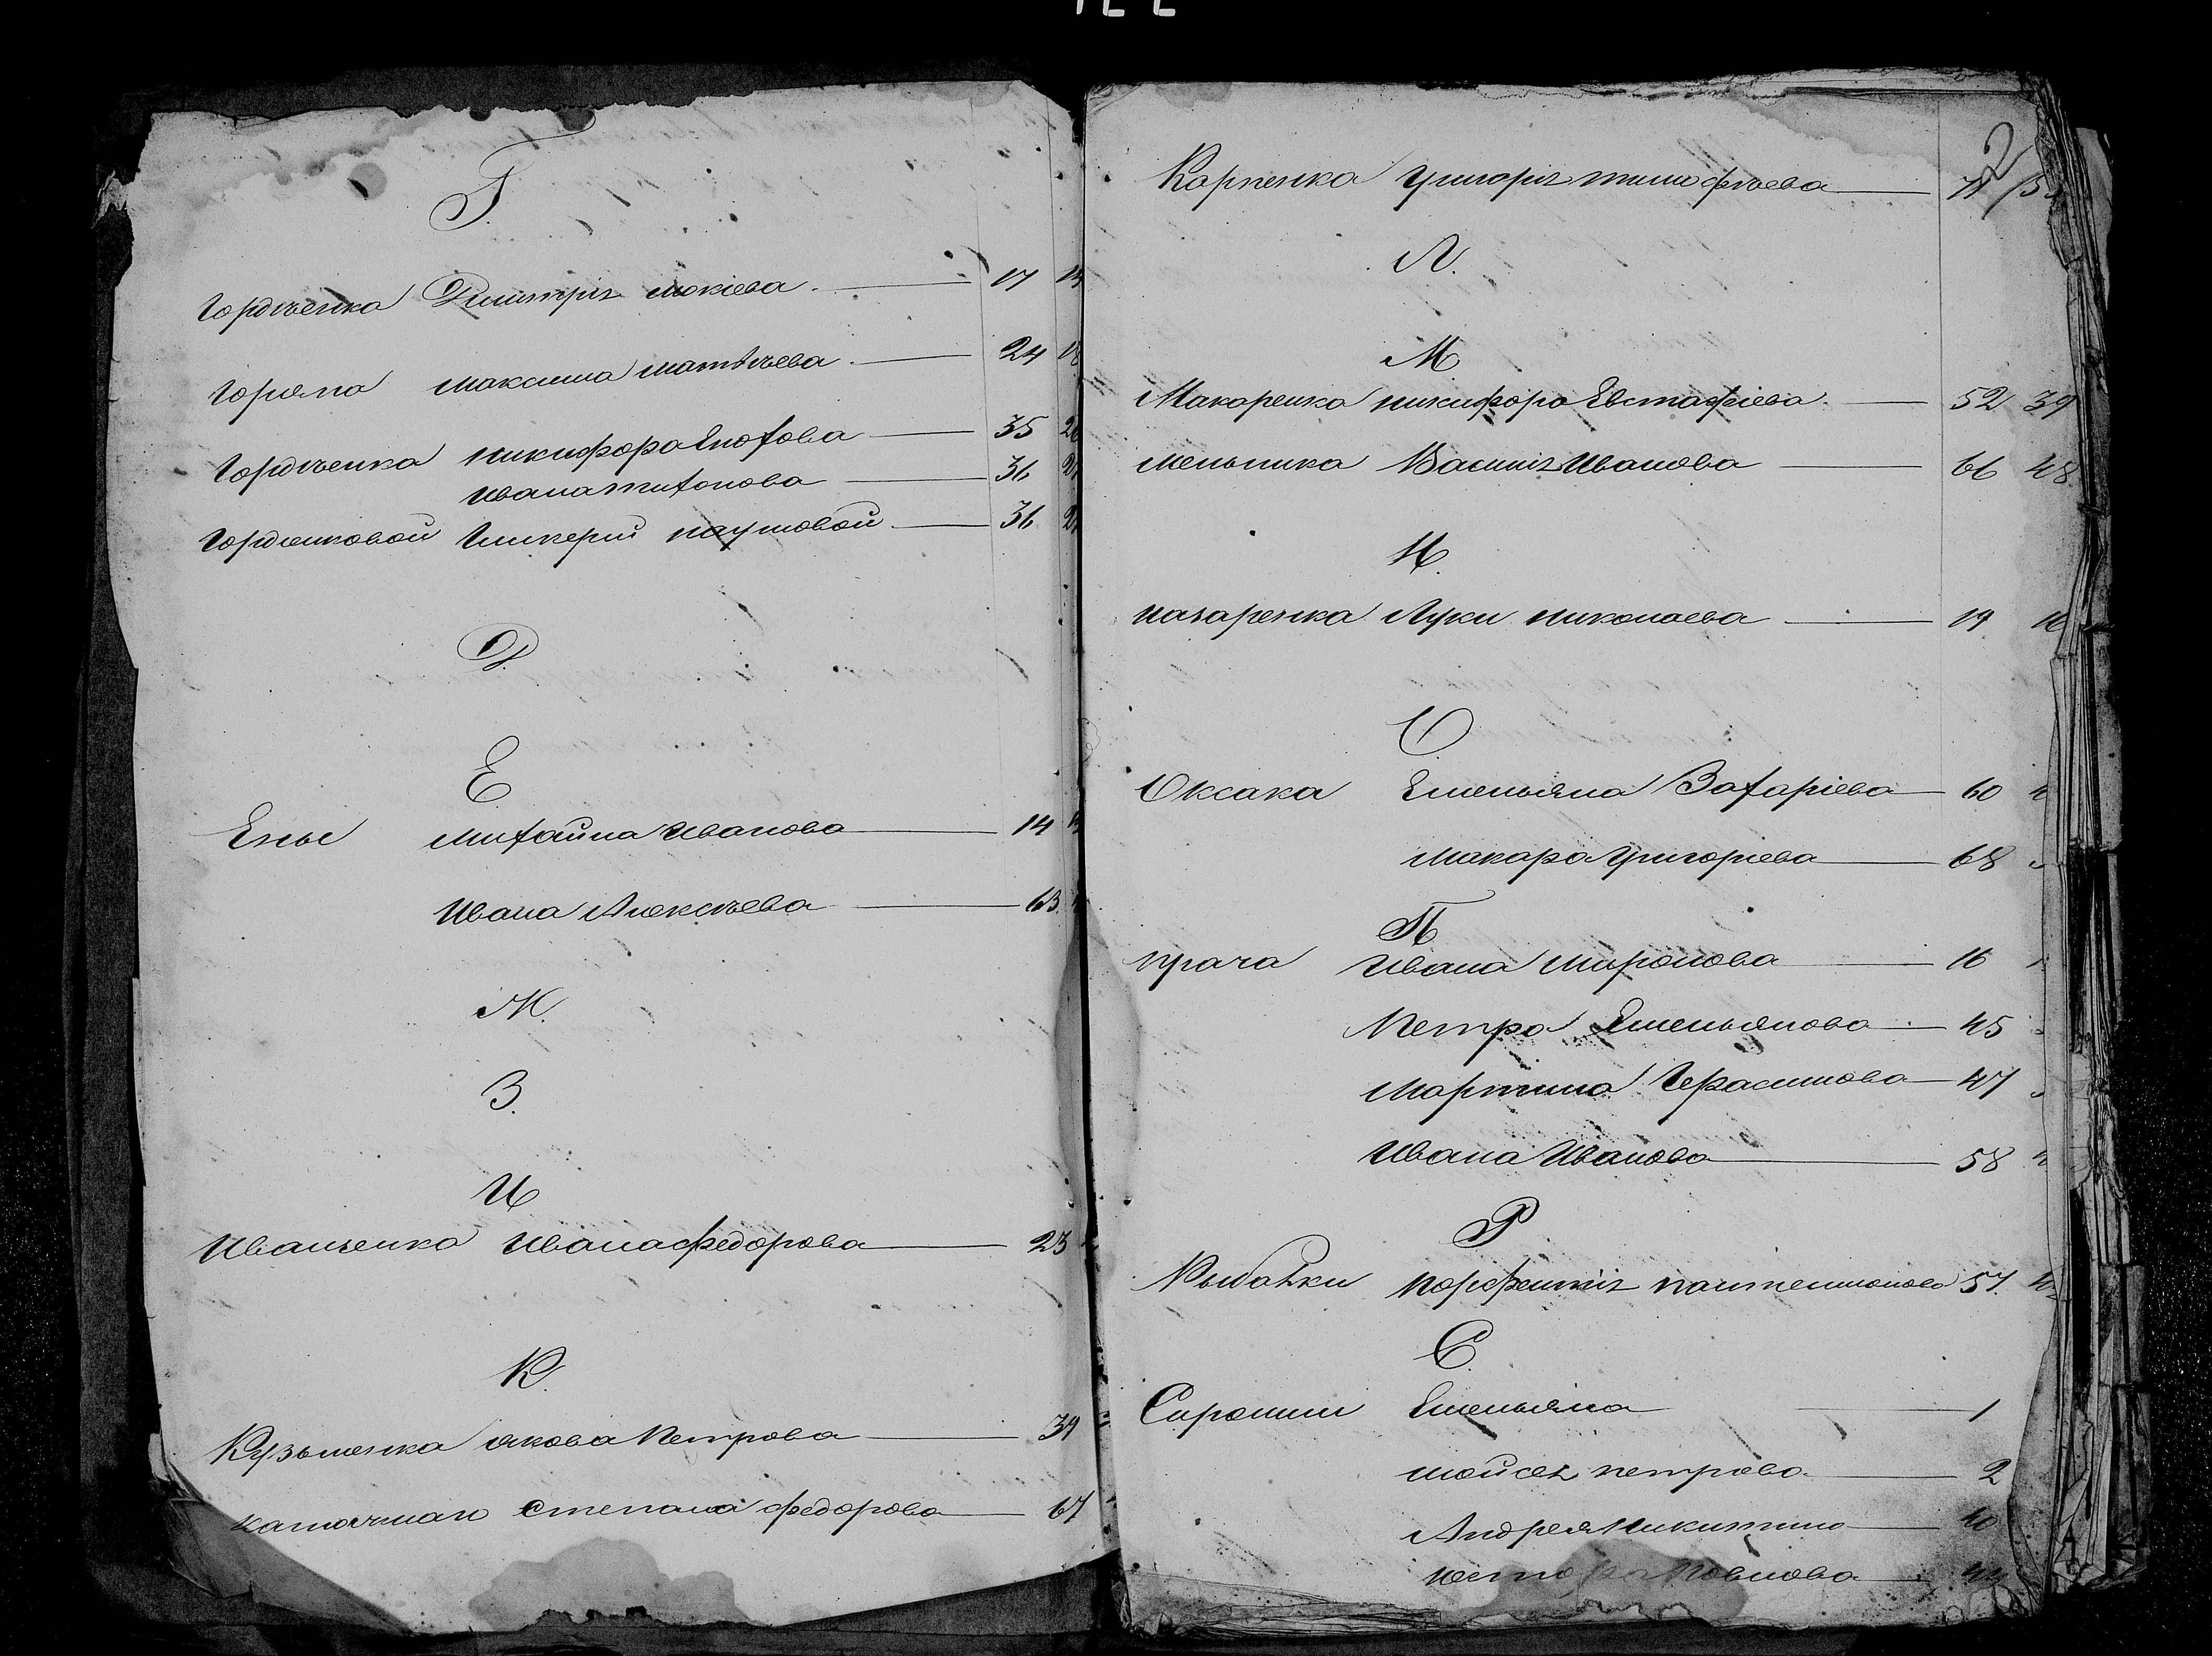 Г.
Гордѣенка Дмитрія мокіева 17
Горяна максима матвѣева 24
Гордѣенка никифора 35
ивана титонова 36
Гордѣенковой Гликеріи наумовой 36
Д.
Е
Ены михаила иванова 14
ивана Алексѣева 63
Ж.
З.
И
Иванченка ивана федорова 23
К.
Кузьменка якова Петрова 39
степана федорова 67
2
Карпенка Григорія тимофѣева 71
Л.
М
Макаренка никифора Евстафіева 52 39
мельника Василія Иванова 66 48
Н.
назаренка Луки николаева 19
О.
Оксака Емельяна Захаріева 60
макара Григоріева 68
П
прача Ивана миронова 16
Петра Емельянова 45
мартина Герасимова 47
Ивана Иванова 58
Р
Рыбалки порфентія пантелимонова 57
С.
Сиромли Емельяна 1
мойсея петрова 2
Андрея Никитина 40
нестора Павлова